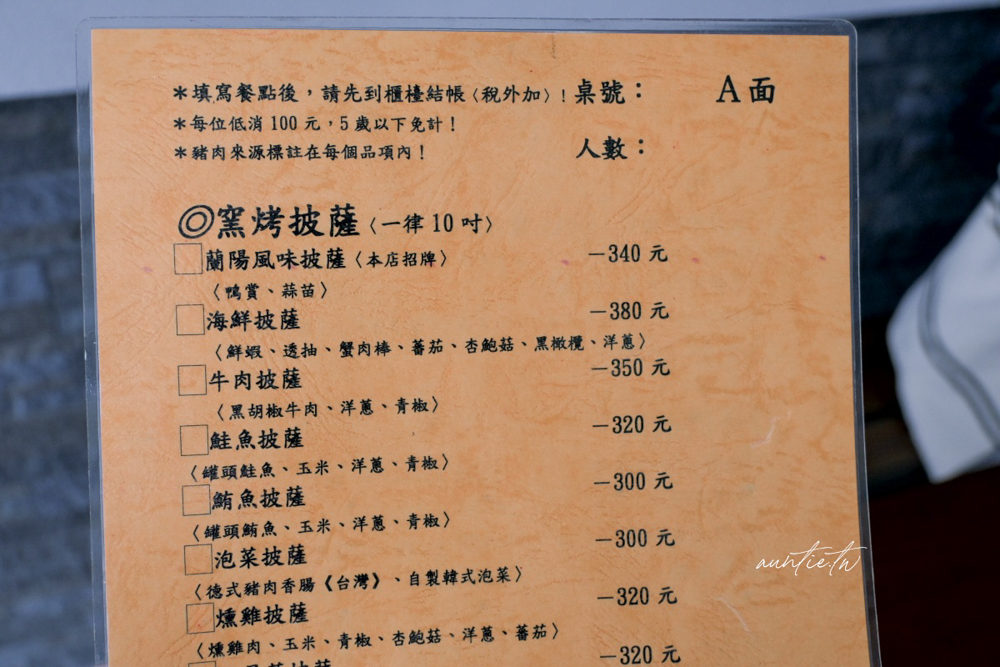 ＊填寫餐點後，請先到櫃檯結帳〈稅外加〉！桌號： A面
＊每位低消 100 元，5 歲以下免計！
＊豬肉來源標註在每個品項內！ 人數：
◎窯烤披薩〈一律 10 吋〉
蘭陽風味披薩〈本店招牌〉 －340 元
〈鴨賞、蒜苗〉
海鮮披薩 －380 元
〈鮮蝦、透抽、蟹肉棒、蕃茄、杏鮑菇、黑橄欖、洋蔥〉
牛肉披薩 －350 元
〈黑胡椒牛肉、洋蔥、青椒〉
鮭魚披薩 －320 元
〈罐頭鮭魚、玉米、洋蔥、青椒〉
鮪魚披薩 －300 元
〈罐頭鮪魚、玉米、洋蔥、青椒〉
泡菜披薩 －300 元
〈德式豬肉香腸《台灣》、自製韓式泡菜〉
燻雞披薩 －320 元
〈燻雞肉、玉米、青椒、杏鮑菇、洋蔥、蕃茄〉
－320 元
auntie.tw